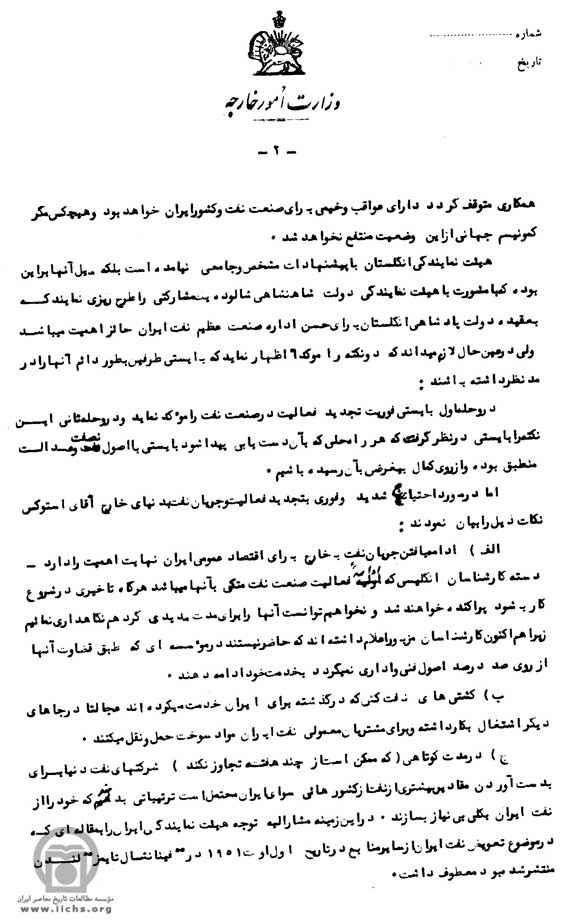 شماره ....................
تاریخ
وزارت امور خارجه
- ۲ -
همکاری متوقف گردد دارای عواقب وخیمی برای صنعت نفت و کشور ایران خواهد بود و هیچکس مگر
کمونیسم جهانی از این وضعیت منتفع نخواهد شد ۰
هیئت نمایندگی انگلستان با پیشنهادات مشخص و جامعی نیامده است بلکه میل آنها براین
بوده که با مشورت با هیئت نمایندگی دولت شاهنشاهی شالوده مشارکتی را طرح ریزی نمایند که
بعقیده دولت پادشاهی انگلستان برای حسن اداره صنعت عظیم نفت ایران حائز اهمیت میباشد
ولی در عین حال لازم میداند که دو نکته را موکدا اظهار نماید که بایستی طرفین بطور دائم آنها را در
مد نظر داشته باشند :
در وحله اول بایستی فوریت تجدید فعالیت در صنعت نفت را موکد نماید و در وحله ثانی این
نکته را بایستی در نظر گرفت که هر راه حلی که بآن دست یابی پیدا شود بایستی با اصول نصفت و عدالت
منطبق بوده و از روی کمال بیغرضی بآن رسیده باشیم ۰
اما در مورد احتیاج شدید و فوری بتجدید فعالیت و جریان نفت بدنیای خارج آقای استوکس
نکات ذیل را بیان نمودند :
الف ) ادامه یافتن جریان نفت به خارج برای اقتصاد عمومی ایران نهایت اهمیت را دارد -
دسته کارشناسان انگلیسی که ادامه فعالیت صنعت نفت متکی بآنها میباشد هرگاه تاخیری در شروع
کار بشود پراکنده خواهند شد و نخواهیم توانست آنها را برای مدت مدیدی گرد هم نگاهداری نمائیم
زیرا هم اکنون کارشناسان مزبور اعلام داشته اند که حاضر نیستند در موسسه ای که طبق قضاوت آنها
از روی صد در صد اصول فنی و اداری نمیگردد بخدمت خود ادامه دهند ۰
ب ) کشتی های نفت کنی که در گذشته برای ایران خدمت میکرده اند عجالتا در جاهای
دیگر اشتغال بکار داشته و برای مشتریان معمولی نفت ایران مواد سوخت حمل و نقل میکنند ۰
ج ) در مدت کوتاهی ( که ممکن است از چند هفته تجاوز نکند ) شرکتهای نفت دنیا برای
بدست آوردن مقادیر بیشتری از نفت از کشور هائی سوای ایران محتمل است ترتیباتی بدهند که خود را از
نفت ایران بکلی بی نیاز بسازند ۰ در این زمینه مشارالیه توجه هیئت نمایندگی ایران را بمقاله ای که
در موضوع تعویض نفت ایران از سایر منابع در تاریخ اول اوت ۱۹۵۱ در "فینانشال تایمز" لندن
منتشر شده بود معطوف داشت ۰
مؤسسه مطالعات تاریخ معاصر ایران
www.iichs.org